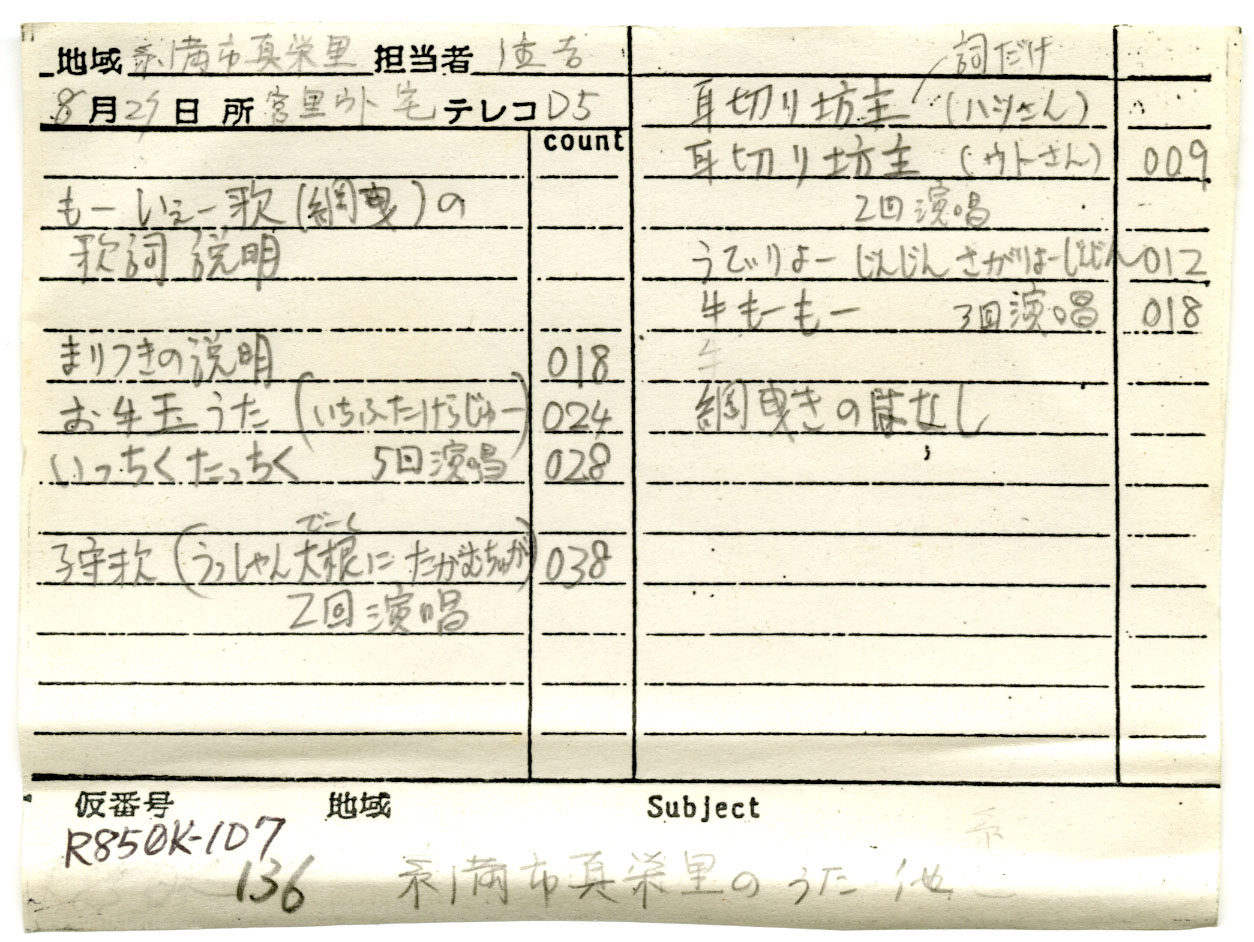 地域 糸満市真栄里 担当者
8月29日 所 宮里ウト宅 テレコ D5
count
もーいえー歌(綱曳)の
歌詞 説明
まりつきの説明 018
お手玉うた (いちふたけらじゅー) 024
いっちくたっちく 5回演唱 028
でーく
子守歌 (うっしゃん大根に たがむちゅが) 038
2回演唱
詞だけ
耳切り坊主 (ハツさん)
耳切り坊主 (ウトーさん) 009
2回演唱
うでぃりよー じんじん さがりよーじんじん 012
牛もーもー 3回演唱 018
牛
綱曳きのはなし
仮番号 地域 Subject
R850K-107
136 糸満市真栄里のうた 他